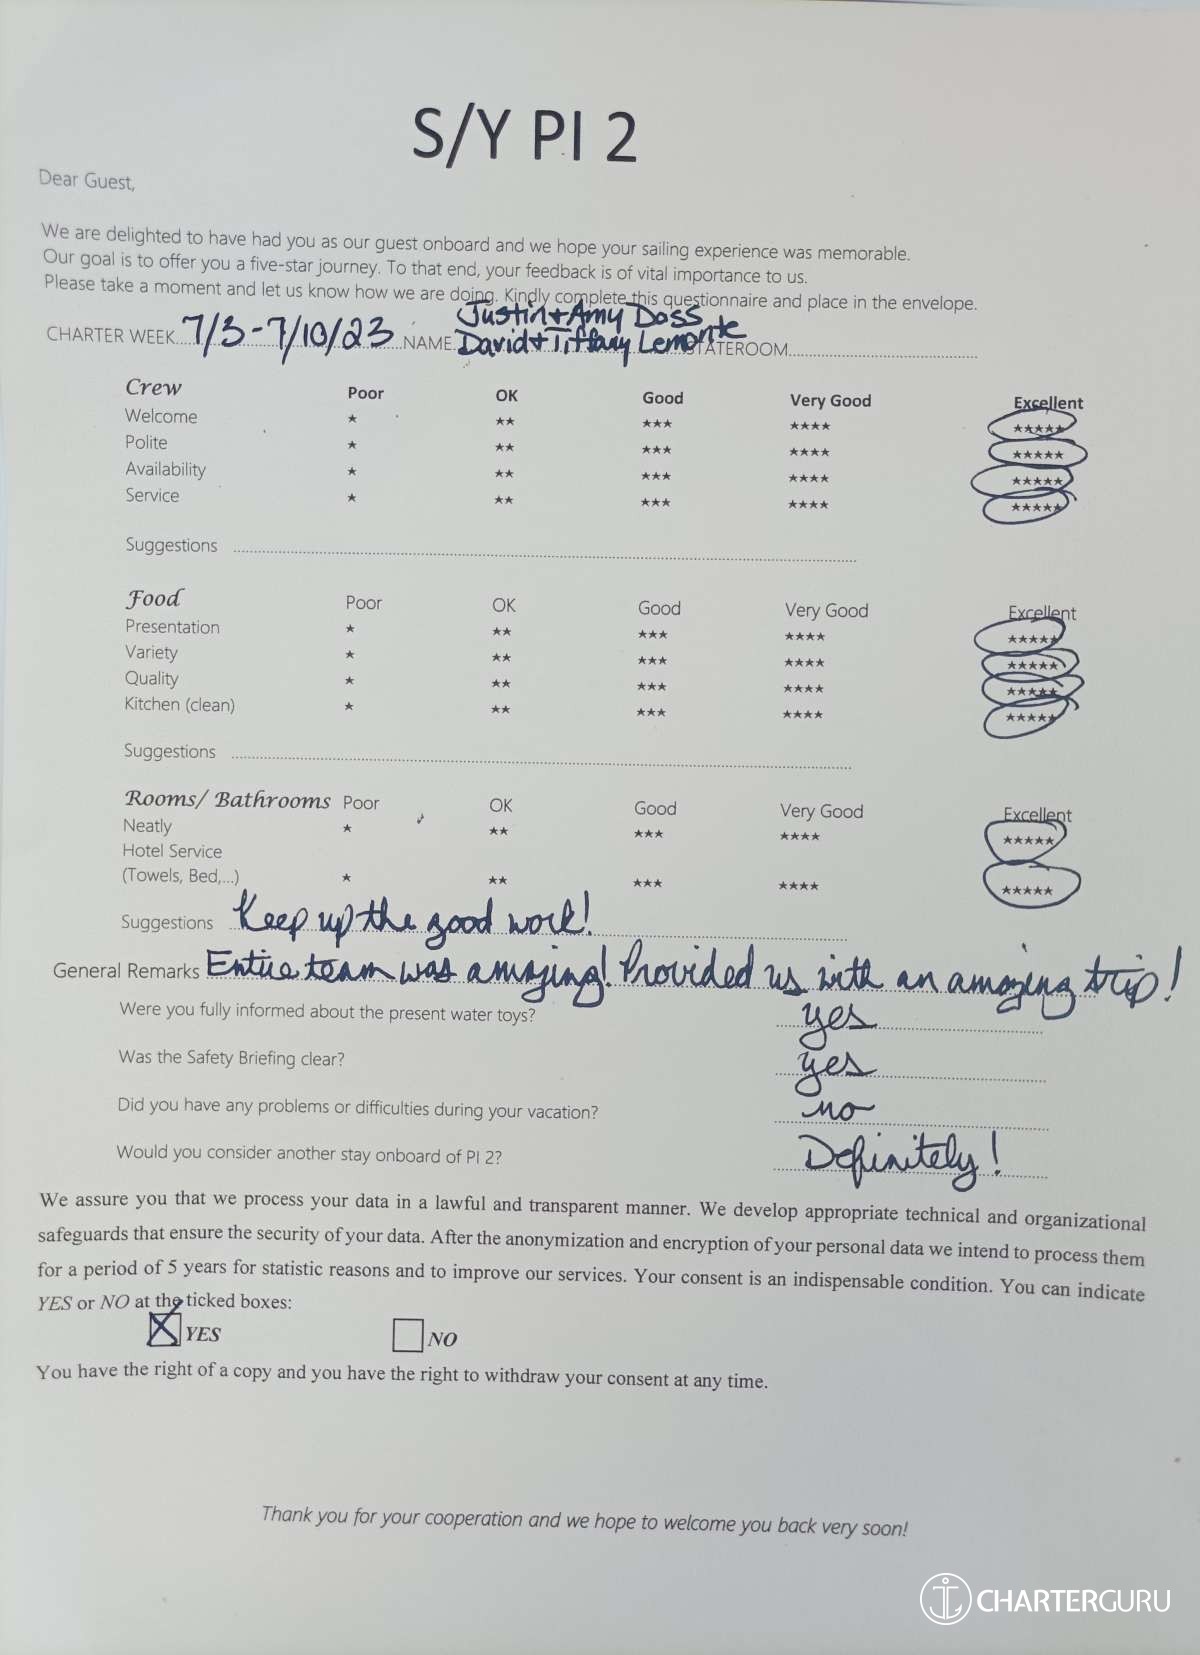 S/Y PI 2
Dear Guest,
We are delighted to have had you as our guest onboard and we hope your sailing experience was memorable.
Our goal is to offer you a five-star journey. To that end, your feedback is of vital importance to us.
Please take a moment and let us know how we are doing. Kindly complete this questionnaire and place in the envelope.
Justin + Amy Doss
CHARTER WEEK 7/3 - 7/10/23 NAME David + Tiffany Lemonte STATEROOM
Crew Poor OK Good Very Good Excellent
Welcome ★ ★★ ★★★ ★★★★ ★★★★★
Polite ★ ★★ ★★★ ★★★★ ★★★★★
Availability ★ ★★ ★★★ ★★★★ ★★★★★
Service ★ ★★ ★★★ ★★★★ ★★★★★
Suggestions
Food Poor OK Good Very Good Excellent
Presentation ★ ★★ ★★★ ★★★★ ★★★★★
Variety ★ ★★ ★★★ ★★★★ ★★★★★
Quality ★ ★★ ★★★ ★★★★ ★★★★★
Kitchen (clean) ★ ★★ ★★★ ★★★★ ★★★★★
Suggestions
Rooms/ Bathrooms Poor OK Good Very Good Excellent
Neatly ★ ★★ ★★★ ★★★★ ★★★★★
Hotel Service
(Towels, Bed,...) ★ ★★ ★★★ ★★★★ ★★★★★
Suggestions Keep up the good work!
General Remarks Entire team was amazing! Provided us with an amazing trip!
Were you fully informed about the present water toys? yes
Was the Safety Briefing clear? yes
Did you have any problems or difficulties during your vacation? no
Would you consider another stay onboard of PI 2? Definitely!
We assure you that we process your data in a lawful and transparent manner. We develop appropriate technical and organizational
safeguards that ensure the security of your data. After the anonymization and encryption of your personal data we intend to process them
for a period of 5 years for statistic reasons and to improve our services. Your consent is an indispensable condition. You can indicate
YES or NO at the ticked boxes:
YES NO
You have the right of a copy and you have the right to withdraw your consent at any time.
Thank you for your cooperation and we hope to welcome you back very soon!
CHARTERGURU